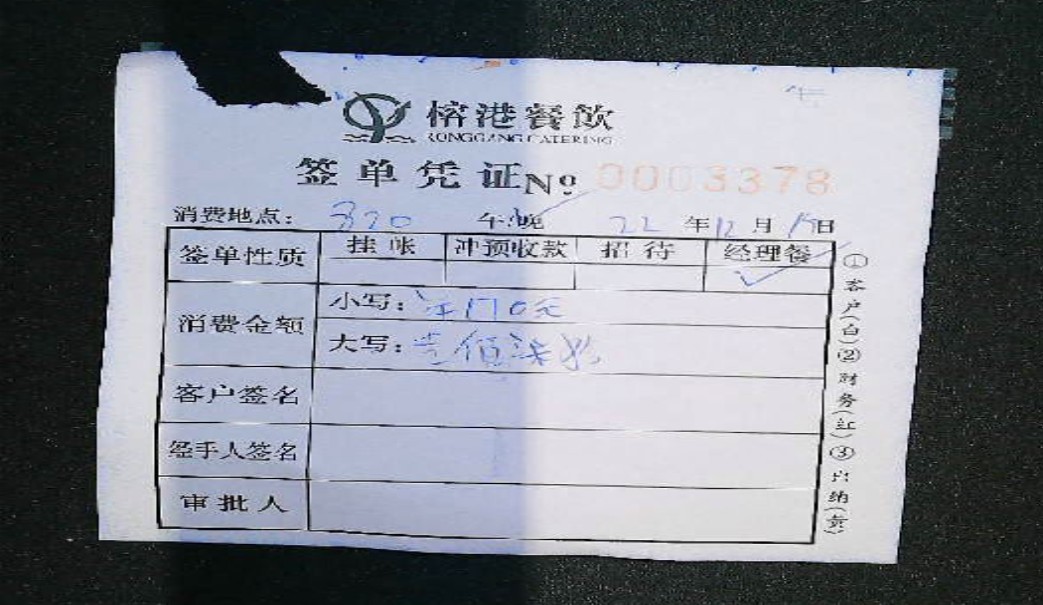 榕港餐饮
RONGGANG CATERING
签单凭证 Nº 0003378
消费地点: 320 午.晚 22年12月19日
签单性质 挂帐 冲预收款 招待 经理餐
消费金额 小写: 170元
大写: 壹佰柒
客户签名
经手人签名
审批人
①客户(白)②财务(红)③出纳(黄)